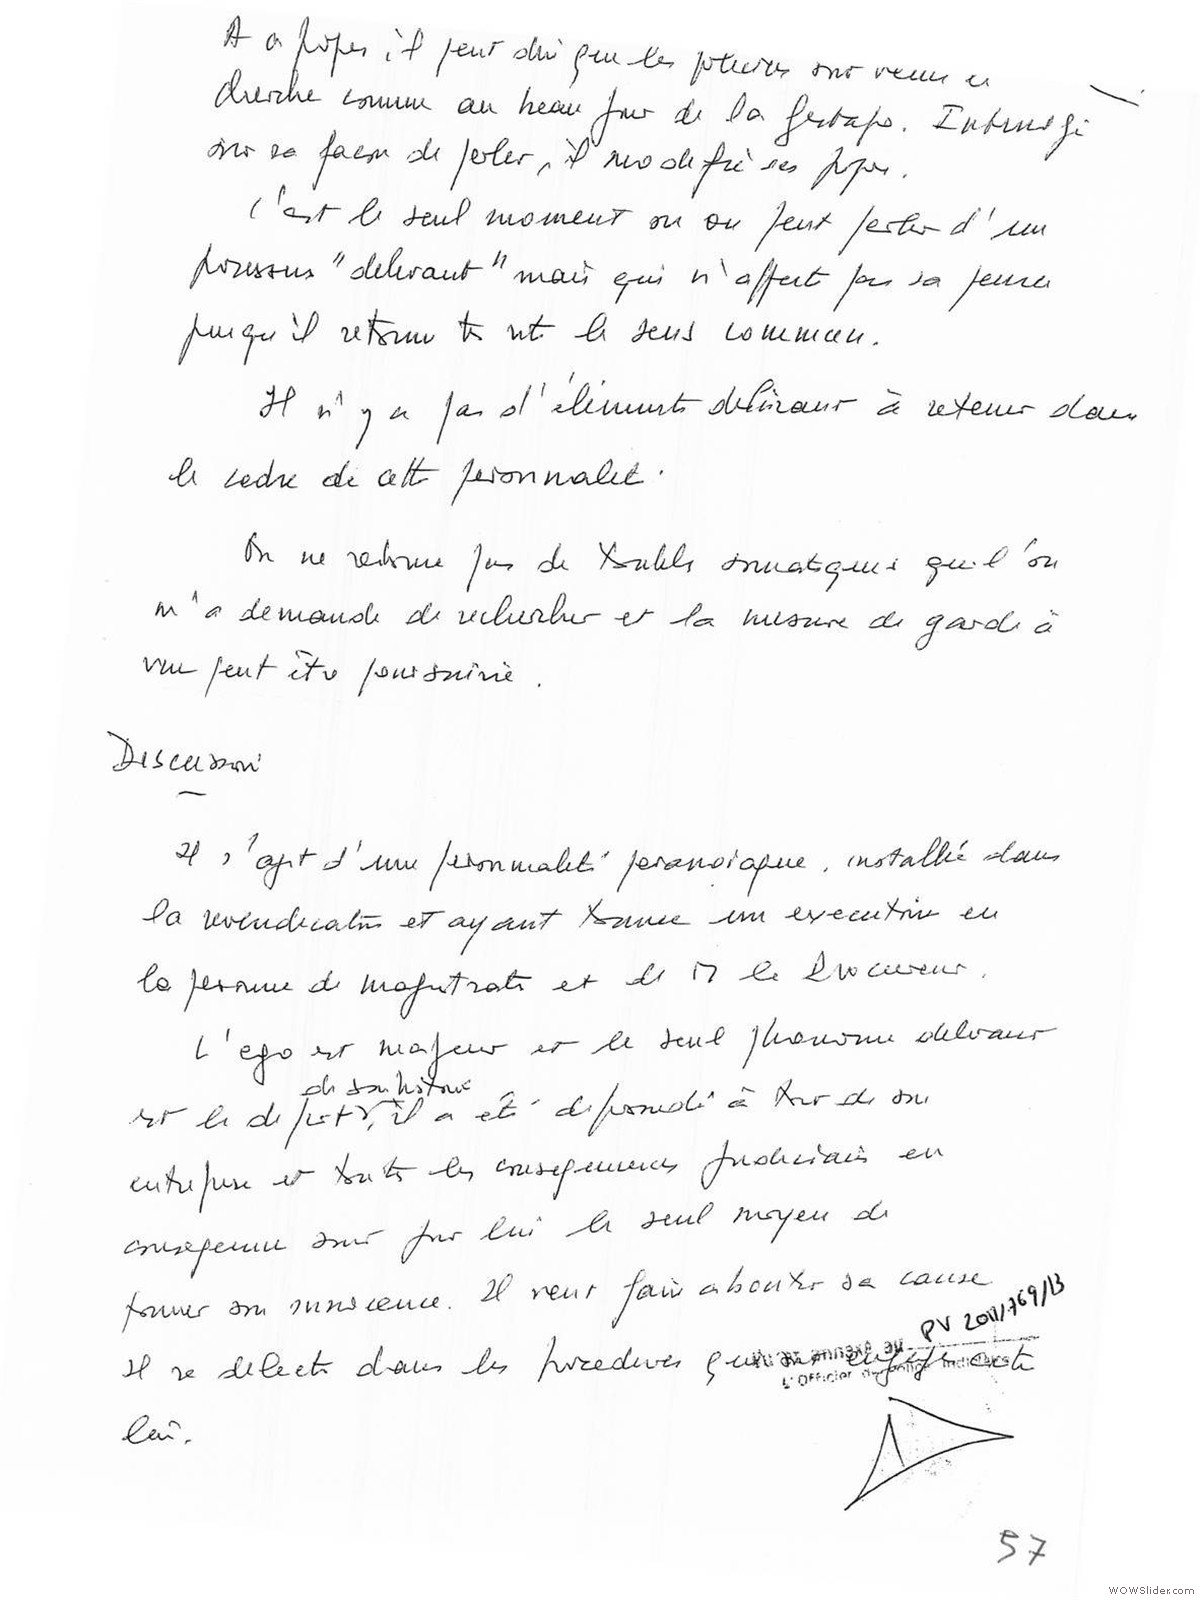 A ce propos, il peut dire que les policiers sont venus le
chercher comme au beau jour de la Gestapo. Interrogé
sur sa façon de parler, il modifie ses propos.
C'est le seul moment où on peut parler d'un
processus "délirant" mais qui n'affecte pas sa pensée
puisqu'il retourne très vite le sens commun.
Il n'y a pas d'éléments délirants à retenir dans
le cadre de cette personnalité.
On ne retrouve pas de troubles somatiques que l'on
m'a demandé de rechercher et la mesure de garde à
vue peut être poursuivie.
Discussion
Il s'agit d'une personnalité paranoïaque, installée dans
la revendication et ayant trouvé un executive en
la personne de magistrats et de M le Procureur.
L'ego est majeur et le seul phénomène délirant
de son histoire
est le départ, il a été dépossédé à tort de son
entreprise et toutes les conséquences judiciaires en
conséquence sont pour lui le seul moyen de
trouver son innocence. Il veut faire aboutir sa cause
Il se délecte dans les procédures qu'
lui.
PV 2011/769/13
annexé au
L'Officier de Police Judiciaire
57
WOWSlider.com